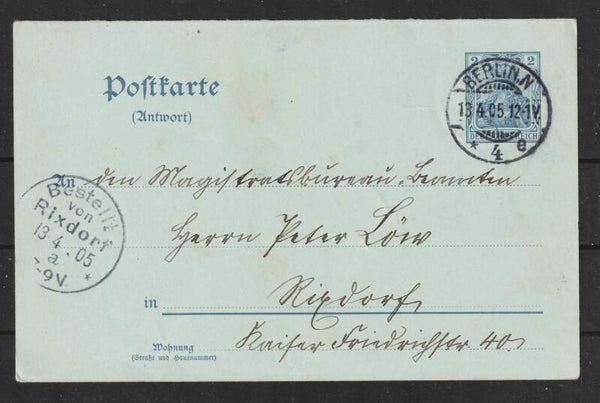 2 2
Postkarte
(Antwort)
BERLIN.N
13 4.05.12-1V.
* 4 e
DEUTSCHES REICH
An den Magistratsbureau-Beamten
Herrn Peter Löw
in Rixdorf
Wohnung Kaiser Friedrichstr 40.
(Straße und Hausnummer)
Bestellt
von
Rixdorf
13 4 . 05
a *
-9V.